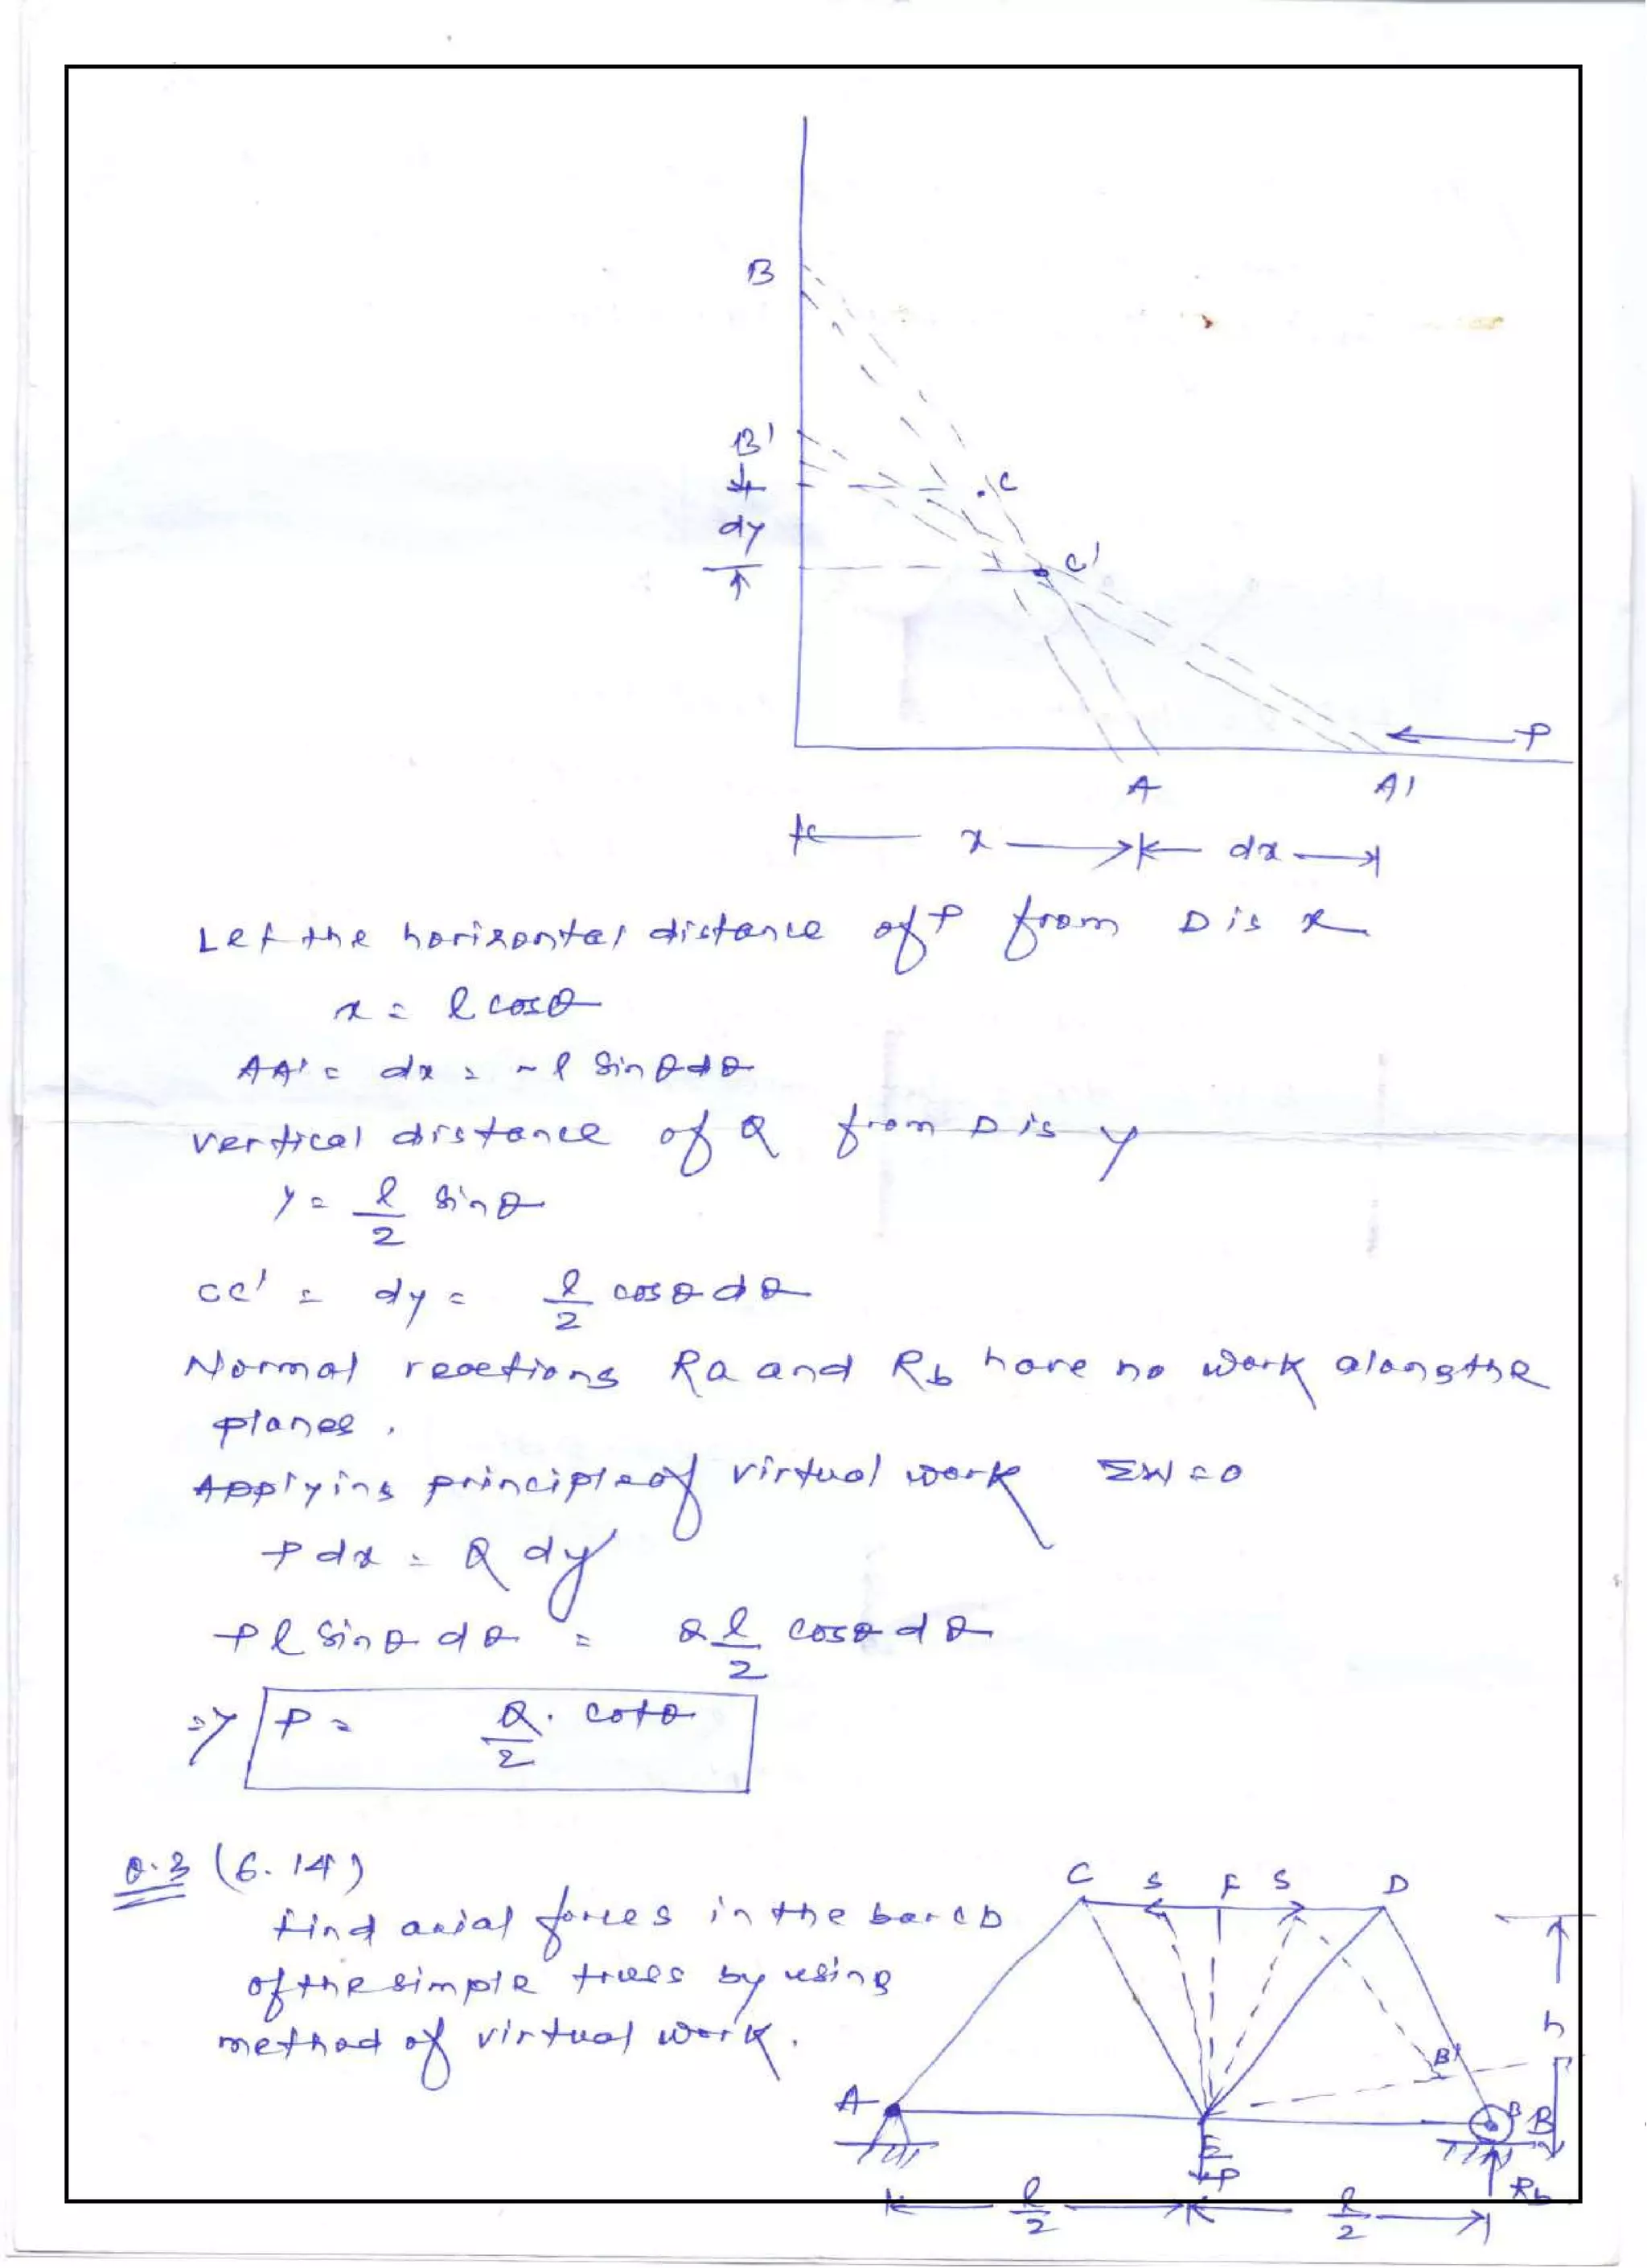 B
B'
dy
C
C'
P
A
A'
x
dx
Let the horizontal distance of P from D is x
x = l cosθ
AA' = dx = - l sinθ dθ
vertical distance of Q from D is y
y = l/2 sinθ
CC' = dy = l/2 cosθ dθ
Normal reactions Ra and Rb have no work along the
planes.
Applying principle of virtual work ΣW=0
P dx = Q dy
P l sinθ dθ = Q l/2 cosθ dθ
=> P = Q/2 . cotθ
Q.3 (6.14)
find axial forces in the bar CD
of the simple truss by using
method of virtual work.
C S F S D
h
B'
A
B B
E
P
Rb
l/2 l/2